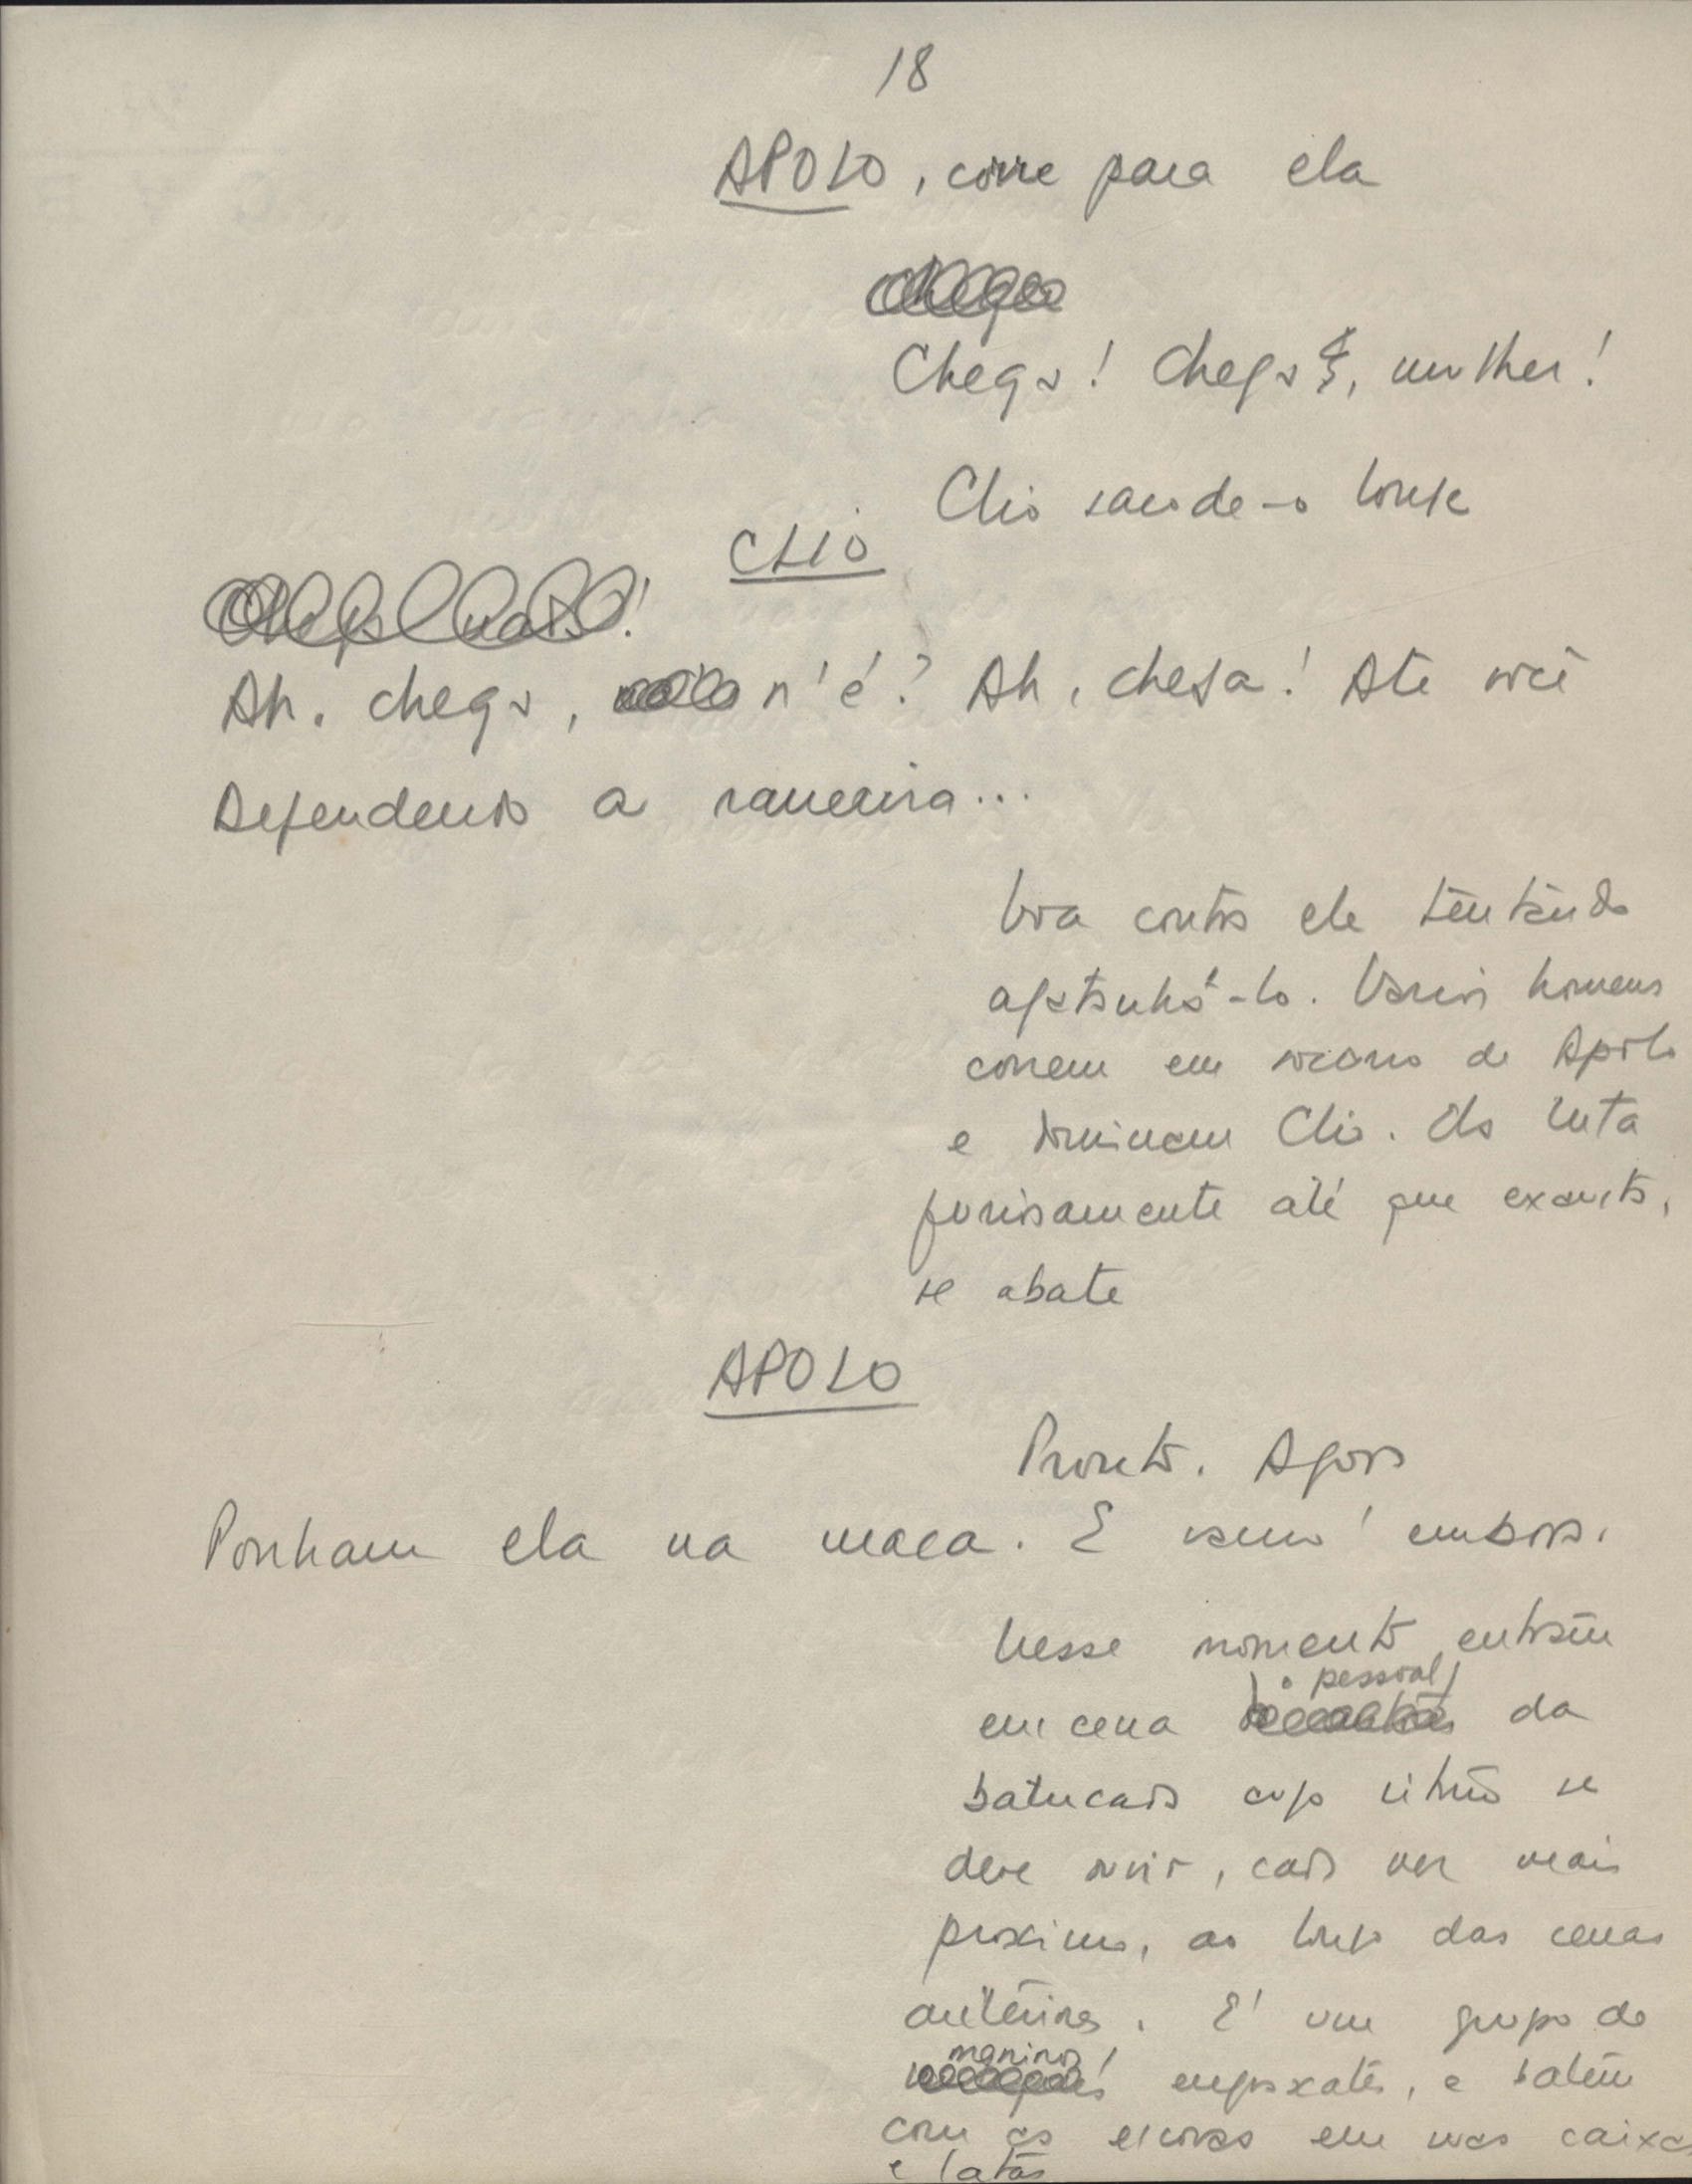 18
APOLO, corre para ela
Chega! Chega, mulher!
Clio sacode-o longe
CLIO
Ah. chega, n'é? Ah, chega! Até você
Defendendo a rameira...
Voa contra ele tentando
agatanhá-lo. Varios homens
correm em socorro de Apolo
e dominam Clio. Ela luta
furiosamente até que exausta,
se abate
APOLO
Pronto. Agora
Ponham ela na maca. E vamo' embora.
Nesse momento entram
o pessoal
em cena da
batucada cujo ritmo se
deve ouvir, cada vez mais
proximo, ao longo das cenas
anteriores. E' um grupo de
meninos
engraxates, e batem
com as escovas em suas caixas
e latas